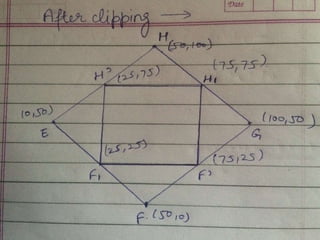 Date
After clipping →
H (50,100)
H' (25,75) H₁ (75,75)
(0,50)
E
G (100,50)
(25,25)
F₁ F' (75,25)
F (50,0)